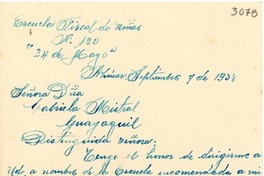 3078
Escuela Fiscal de Niñas
N: 120
"24 de Mayo"
Septiembre 7 de 1938
Señora Dña
Gabriela Mistral
Guayaquil
Distinguida señora:
Tengo el honor de dirigirme a
Ud, a nombre de la Escuela encomendada a mi